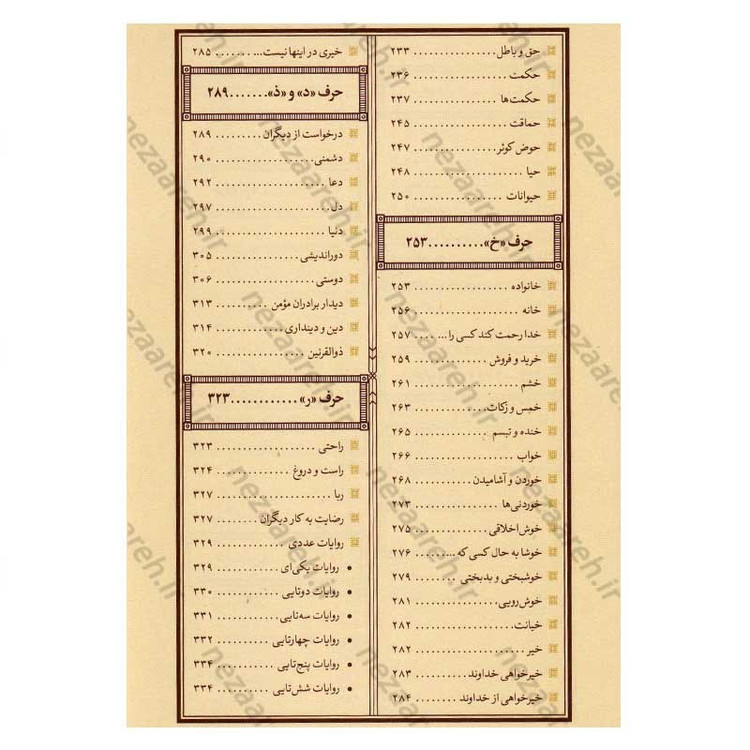 حق و باطل ................ ۲۳۳
حکمت ................ ۲۳۶
حکمت‌ها ................ ۲۳۷
حماقت ................ ۲۴۵
حوض کوثر ................ ۲۴۷
حیا ................ ۲۴۸
حیوانات ................ ۲۵۰
حرف «خ» .......... ۲۵۳
خانواده ................ ۲۵۳
خانه ................ ۲۵۶
خدا رحمت کند کسی را... .... ۲۵۷
خرید و فروش ............ ۲۵۹
خشم ................ ۲۶۱
خمس و زکات ............ ۲۶۳
خنده و تبسم ............ ۲۶۵
خواب ................ ۲۶۶
خوردن و آشامیدن ........ ۲۶۸
خوردنی‌ها ............ ۲۷۳
خوش‌اخلاقی ............ ۲۷۵
خوشا به حال کسی که... ...... ۲۷۶
خوشبختی و بدبختی ........ ۲۷۹
خوش‌رویی ............ ۲۸۱
خیانت ................ ۲۸۲
خیر ................ ۲۸۲
خیرخواهی خداوند ........ ۲۸۳
خیرخواهی از خداوند ........ ۲۸۴
خیری در اینها نیست... ...... ۲۸۵
حرف «د» و «ذ» ....... ۲۸۹
درخواست از دیگران ........ ۲۸۹
دشمنی ................ ۲۹۰
دعا ................ ۲۹۲
دل ................ ۲۹۷
دنیا ................ ۲۹۹
دوراندیشی ............ ۳۰۵
دوستی ................ ۳۰۶
دیدار برادران مؤمن ........ ۳۱۳
دین و دینداری ............ ۳۱۴
ذوالقرنین ............ ۳۲۰
حرف «ر» ............ ۳۲۳
راحتی ................ ۳۲۳
راست و دروغ ............ ۳۲۴
ربا ................ ۳۲۷
رضایت به کار دیگران ........ ۳۲۷
روایات عددی ............ ۳۲۹
• روایات یکی‌ای ............ ۳۲۹
• روایات دوتایی ............ ۳۳۰
• روایات سه‌تایی ............ ۳۳۱
• روایات چهارتایی .......... ۳۳۲
• روایات پنج‌تایی .......... ۳۳۴
• روایات شش‌تایی .......... ۳۳۴
nezaareh.ir